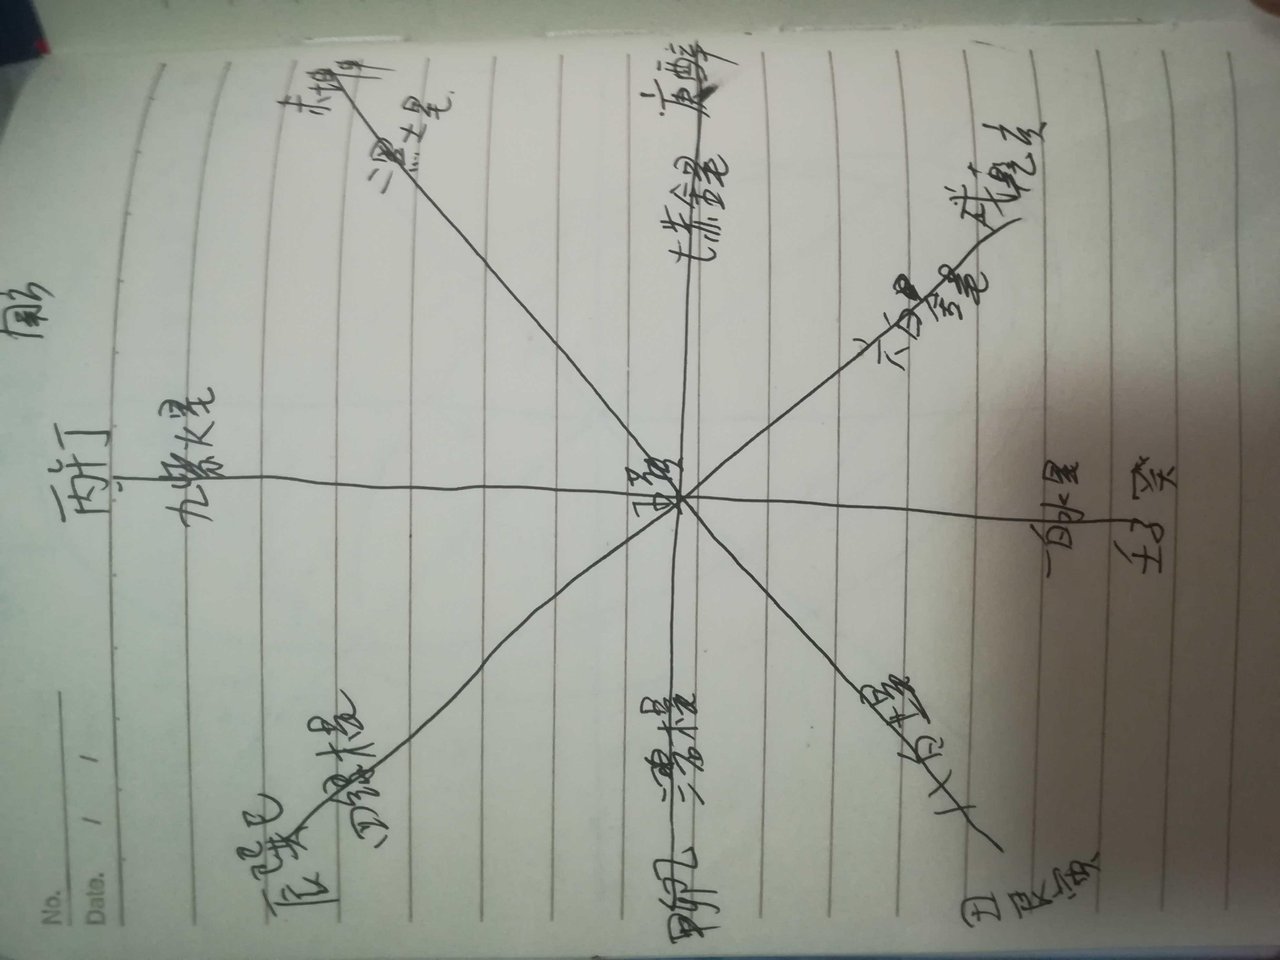 No.
Date. / /
南方
丙午丁
九紫火星
未坤申
二黑土星
辰巽巳
四绿木星
庚酉辛
七赤金星
五黄
甲卯乙
三碧木星
戌乾亥
六白金星
一白水星
壬子癸
八白土星
丑艮寅